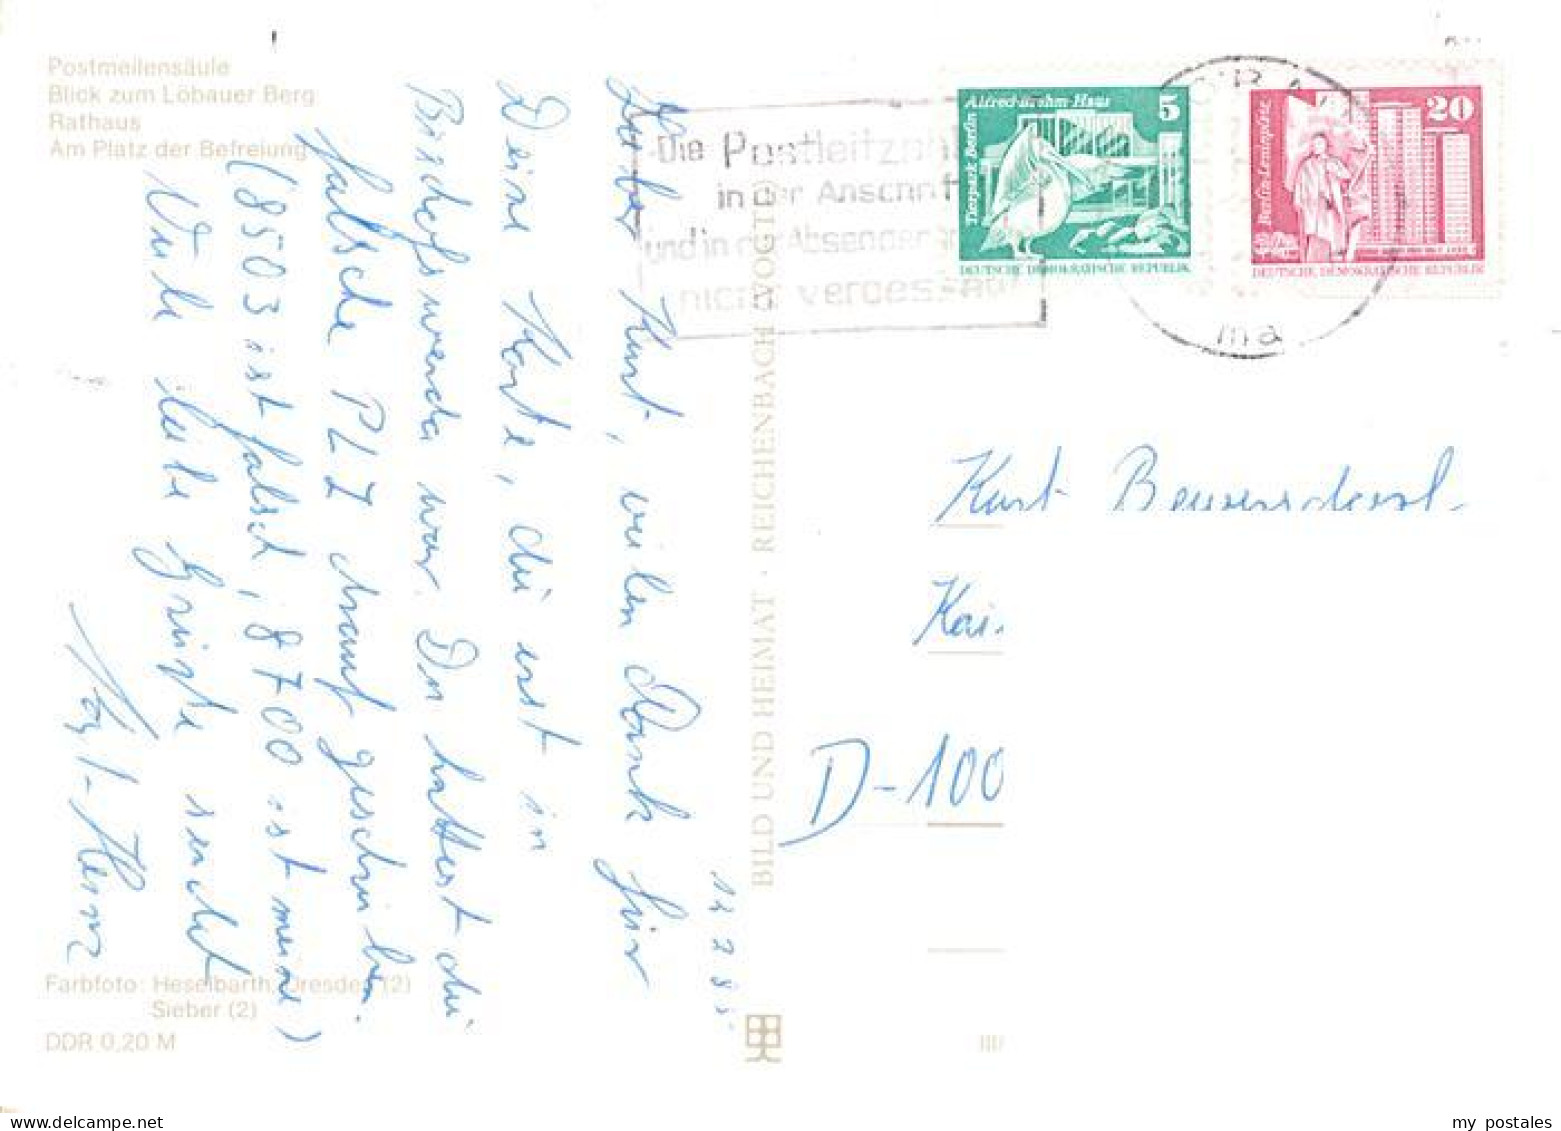 Postmeilensäule
Blick zum Löbauer Berg
Rathaus
Am Platz der Befreiung
Lieber Kurt, vielen Dank für
Deine Karte, die erst in
Bischofswerda war. Du hattest die
falsche PLZ drauf geschrieben.
(8503 ist falsch, 8700 ist meine)
Viele liebe Grüße sendet
12 2 85
Farbfoto: Heselbarth, Dresden (2)
Sieber (2)
DDR 0,20 M
BILD UND HEIMAT · REICHENBACH (VOGTL)
Die Postleitzahl
in der Anschrift
und in der Absenderan
nicht vergessen!
Alfred-Brehm-Haus
5
Tierpark Berlin
DEUTSCHE DEMOKRATISCHE REPUBLIK
20
Berlin-Leninplatz
DEUTSCHE DEMOKRATISCHE REPUBLIK
ma
Kurt
Kai.
D-100
my postales